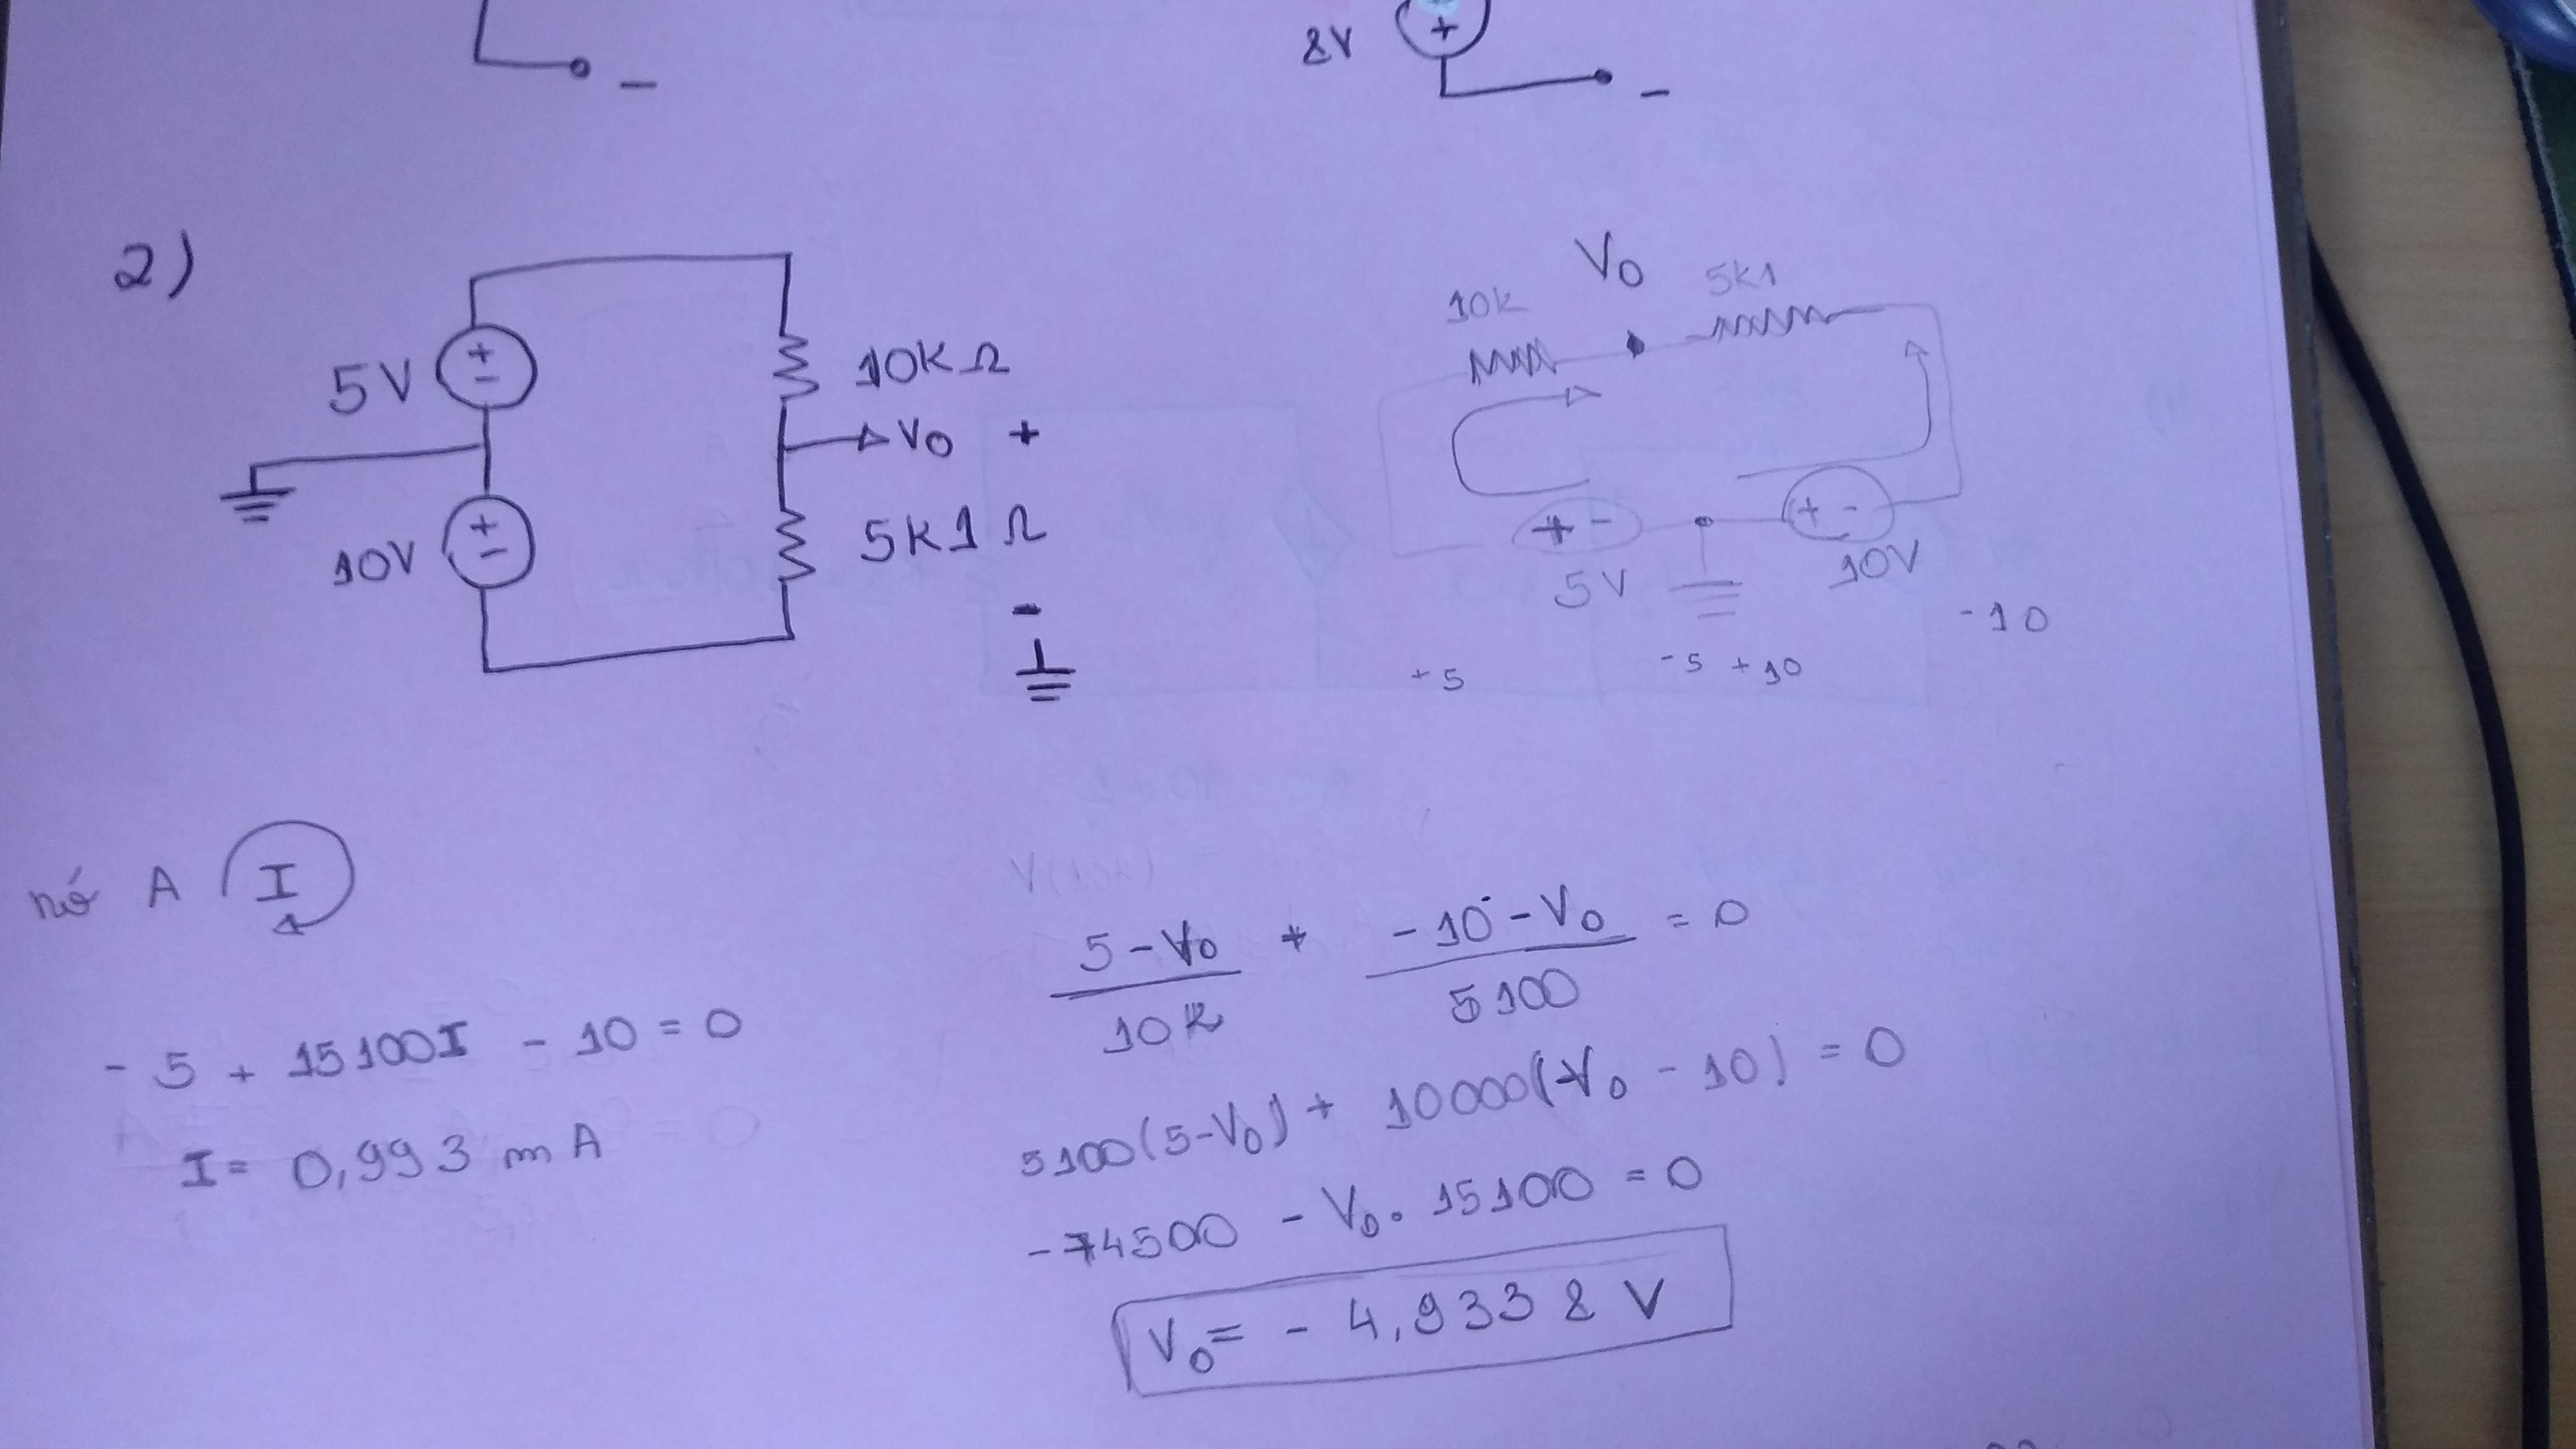 -
8V + -
2)
5V + -
10KΩ
Vo +
10V + -
5K1 Ω
-
Vo
10k 5k1
+ - + -
5V 10V
-10
+5 -5 +10
nó A I
- 5 + 15100I - 10 = 0
I = 0,993 mA
5 - Vo / 10k + -10 - Vo / 5100 = 0
5100(5-Vo) + 10000(-Vo - 10) = 0
-74500 - Vo. 15100 = 0
Vo = - 4,9338 V